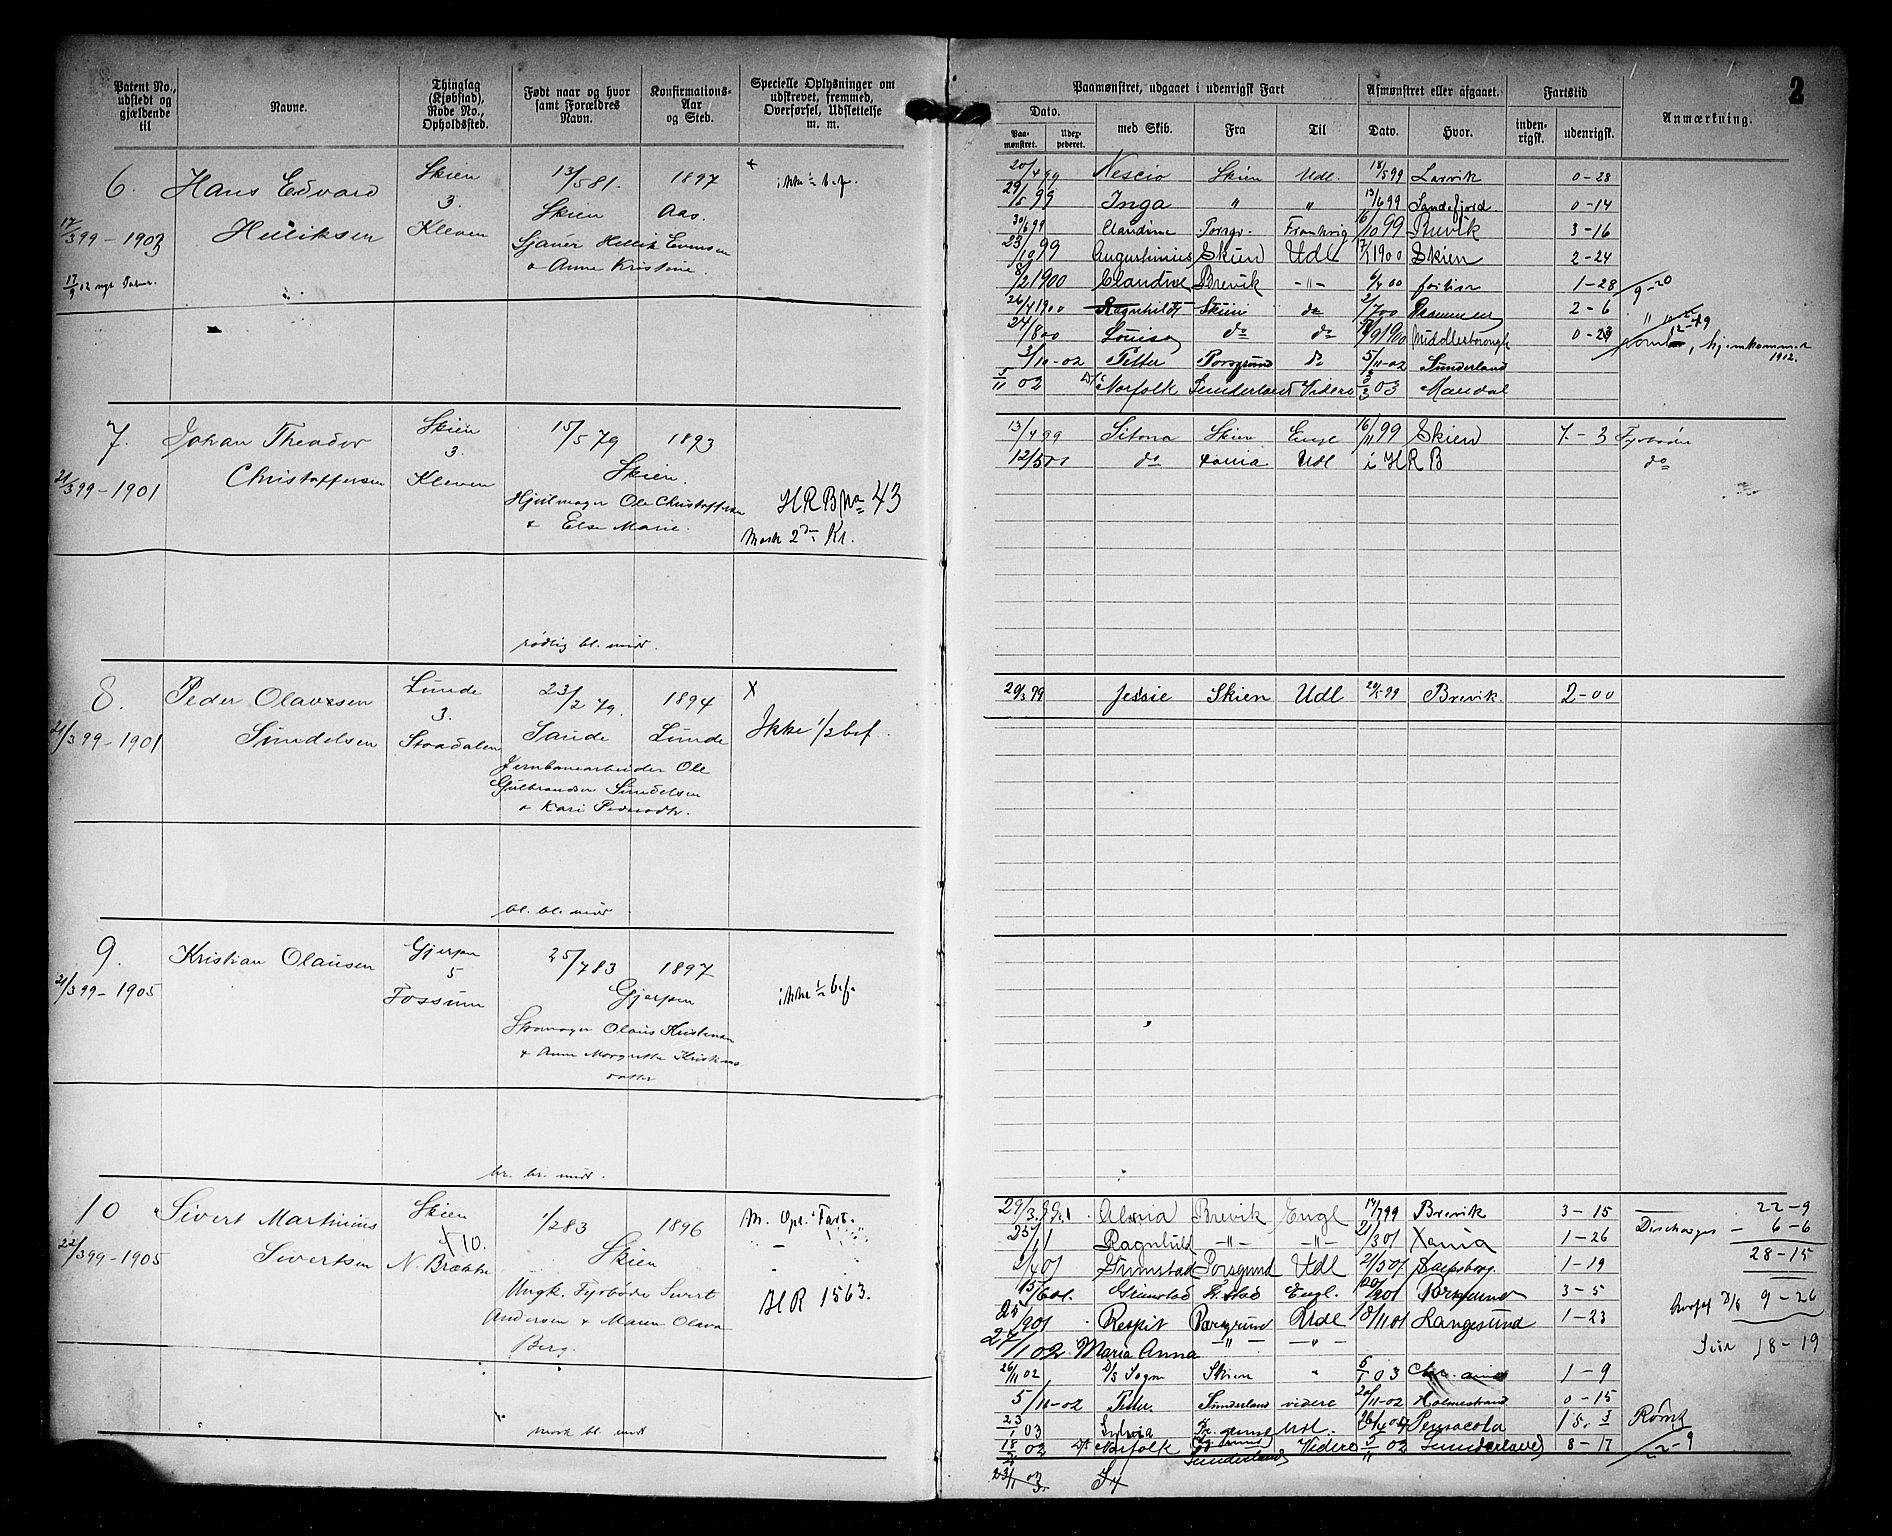 2
Patent No., udstedt og gjældende til
Navne.
Thinglag (Kjøbstad), Rode No., Opholdssted.
Født naar og hvor samt Forældres Navn.
Konfirmations-Aar og Sted.
Specielle Oplysninger om udskrevet, fremmed, Overførsel, Udslettelse m. m.
Paamønstret, udgaaet i udenrigsk Fart
Afmønstret eller afgaaet.
Fartstid
Anmærkning.
Dato.
Paa-mønstret.
med Skib.
Fra
Til
Dato.
Hvor.
inden-rigsk.
udenrigsk.
6.
Hans Edvard
Skien
13/5 81.
1897
ikke ½ bef.
3.
Skien
Aas.
17/3 99 - 1903
Kleven
& Anne Kristine.
20/4 99 Nescio Skien Udl. 18/5 99 Larvik 0-28
29/5 99 Inga " " 13/6 99 Sandefjord. 0-14
30/6 99 Claudine Porsgr. Frankrig 16/10 99 Brevik 3-16
23/10 99 Augustinius Skien Udl 7/1 1900 Skien 2-24
8/2 1900 Claudine Brevik -"- 6/4 00 1-28
9-20
26/4 1900 Ragnhild Skien do 2/7 00 2-6
24/8 00 Louise do do Middlesborough 0-23
Rømt, hjemkommet 1902.
3/10-02 Petter Porsgrund do 5/11-02 Sunderland
5/11 02 D/S Norfolk Sunderland Videre 3/3 03 Mandal
7.
Johan Theodor
Skien
15/5 79
1893
3.
Skien.
21/3 99 - 1901
Christoffersen
Kleven
Hjulmager Ole Christoffersen
& Else Marie.
HRB No 43
Mask 2den Kl.
rødlig bl. midd.
13/4 99 Sitona Skien Engl 16/11 99 Skien 7-3 Fyrbøder
12/5 00 do Xania Udl i HRB do
8.
Peder Olavesen
Lunde
23/2 79.
1894
x
3.
Sunde
21/3 99 - 1901
Sundelsen
Lunde
Ikke 1/2 bef.
Jernbanearbeider Ole
Gulbrandsen Sundelsen
& Kari Pedersdtr.
bl. bl. midd
20/3 99 Jessie Skien Udl Brevik. 2-00
9.
Kristian Olausen
Gjerpen
25/7 83
1897
5
Gjerpen
21/3 99 - 1905
Fossum
ikke ½ bef.
Skomager Olaus Kristensen
& Anne Margrethe Kristens
datter
br. br. midd.
10
Sivert Martinius
Skien
1/2 83
1896
10.
Skien
22/3 99 - 1905
Sivertsen
N. Brække
Ungk. Fyrbøder Sivert
Andersen & Maren Olava
Berg.
HR 1563.
mørk bl. midd
Brevik Engl 17/7 99 Brevik 3-15
22-9
Ragnhild -"- -"- Xania 1-26
6-6
2/4 01 Grimstad Porsgrund Udl 21/5 01 Sarpsborg. 1-19
28-15
15/6 01. Grimstad Engl. Porsgrund 3-5
9-26
25/9 01 Respit Porsgrund Udl 18/11 01 Langesund 1-23
18-19
27/1 02. Maria Anna -"- -"-
26/11 02 D/S Sogn Skien " 5/1 03 1-9
5/11-02 Petter. Sunderland videre 20/11-02 Holmestrand 0-15
23/1 03 Sylvia Udl. Pensacola 15. 3 Rømt
18/2 02 D/S Norfolk Sunderland Videre 5/11 02 Sunderland 8-17
2-9